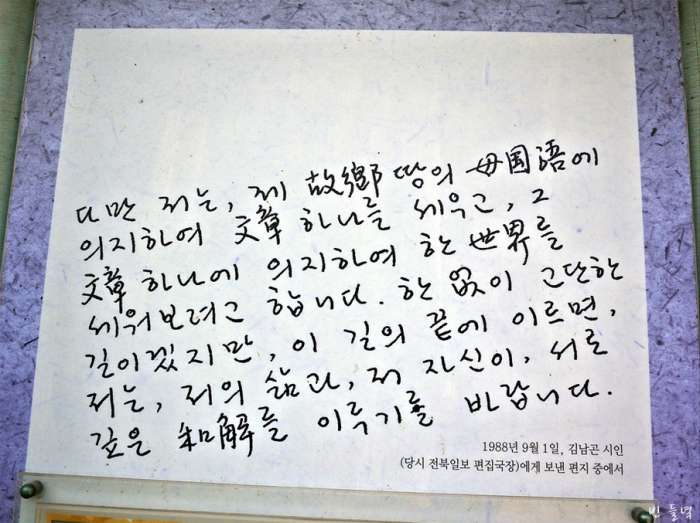 다만 저는, 제 故鄕 땅의 母国語에
의지하여 文章 하나를 세우고, 그
文章 하나에 의지하여 한 世界를
세워보려고 합니다. 한없이 고단한
길이겠지만, 이 길의 끝에 이르면,
저는, 저의 삶과, 저 자신이, 서로
깊은 和解를 이루기를 바랍니다.
1988년 9월 1일, 김남곤 시인
(당시 전북일보 편집국장)에게 보낸 편지 중에서
빈 들녘